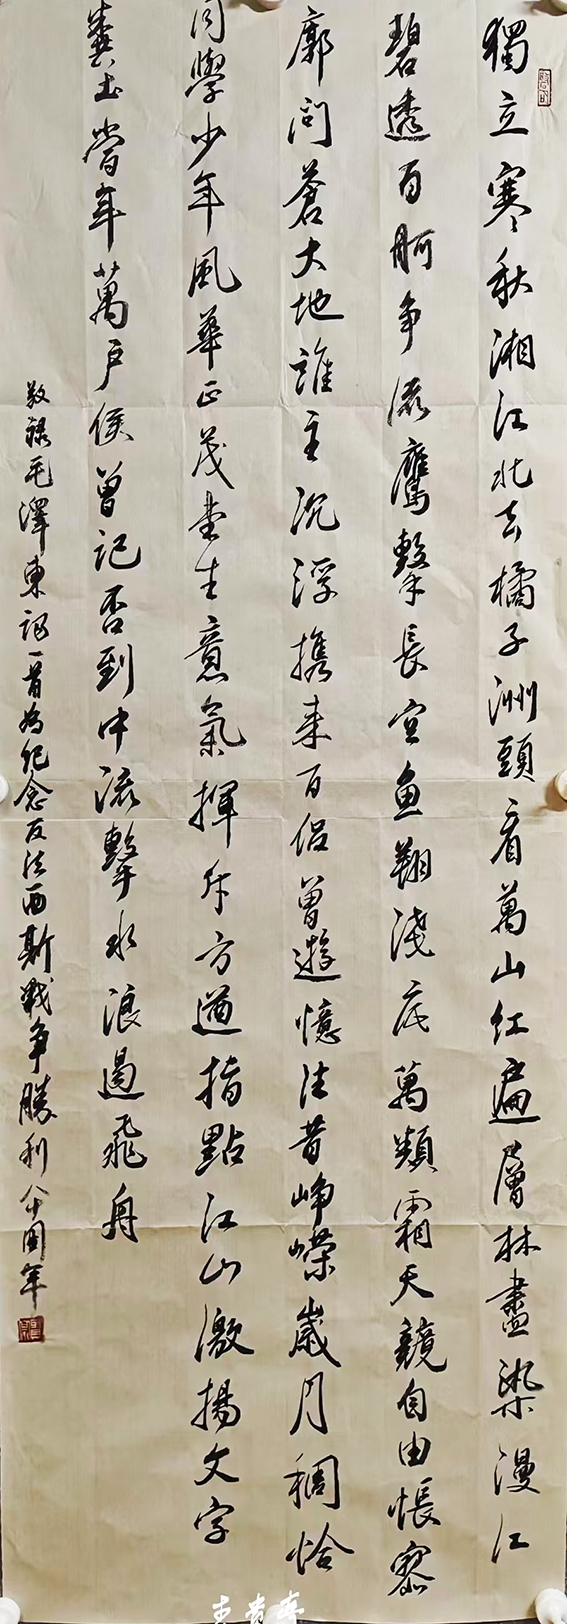 獨立寒秋湘江北去橘子洲頭看萬山红遍層林盡染漫江
碧透百舸争流鷹擊長空魚翔淺底萬類霜天競自由悵寥
廓問蒼大地誰主沉浮携来百侣曾遊憶往昔崢嶸歲月稠恰
同學少年風華正茂書生意氣揮斥方遒指點江山激揚文字
糞土當年萬户侯曾記否到中流擊水浪遏飛舟
敬録毛澤東詞一首為纪念反法西斯戰争勝利八十周年